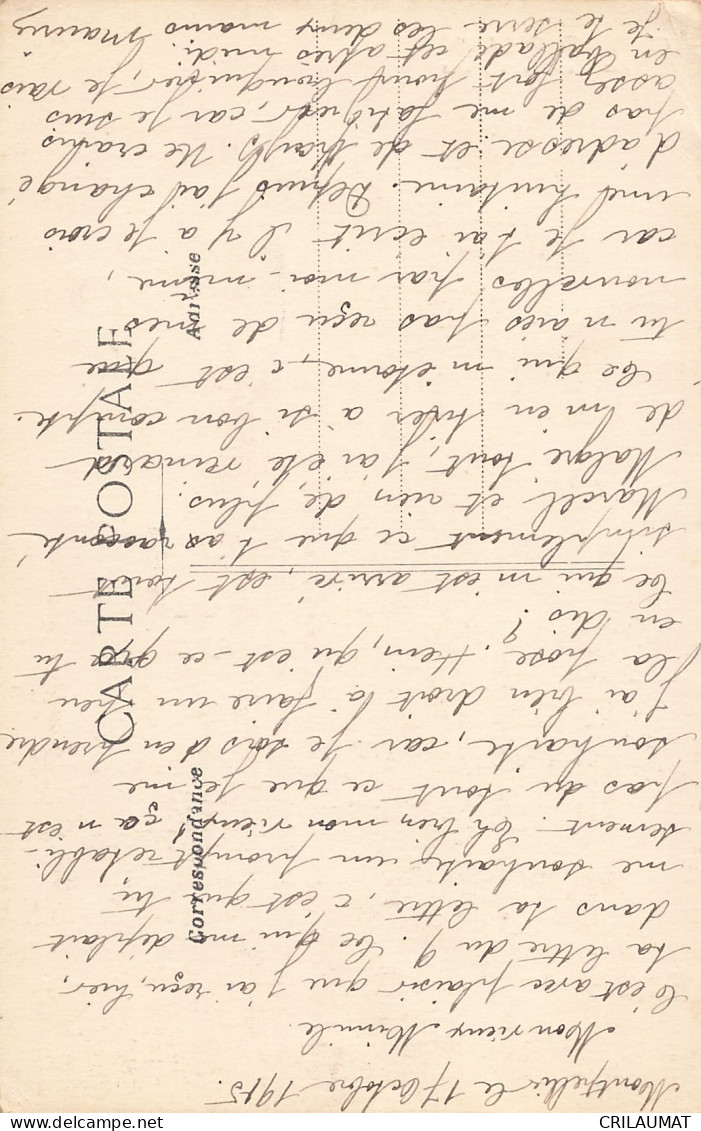 Montpellier le 17 Octobre 1915.
Mon vieux Mimile
C'est avec plaisir que j'ai reçu, hier,
ta lettre du 9. Ce qui me déplait
dans ta lettre, c'est que tu
me souhaites un prompt rétabli-
sement. Eh bien mon vieux! ça n'est
pas du tout ce que je me
souhaite, car je vais d'en prendre
j'ai bien droit là faire un peu
la pose. Hein, qu'est-ce que tu
en dis?
Ce qui m'est arrivé, est tout
simplement ce que t'as raconté
Marcel et rien de plus.
Malgré tout, j'ai été veinard
de m'en tirer à si bon compte.
Ce qui m'étonne, c'est que
tu n'aies pas reçu de mes
nouvelles par moi-même,
car je t'ai écrit il y a je crois
une huitaine. Depuis j'ai changé
d'adresse et de Ne crains
pas de me fatiguer, car je suis
assez fort pour je vais
en ballade cet après midi.
Je te serre les deux mains Mauriz
CARTE POSTALE
Correspondance
Adresse
CRILAUMAT
www.delcampe.net